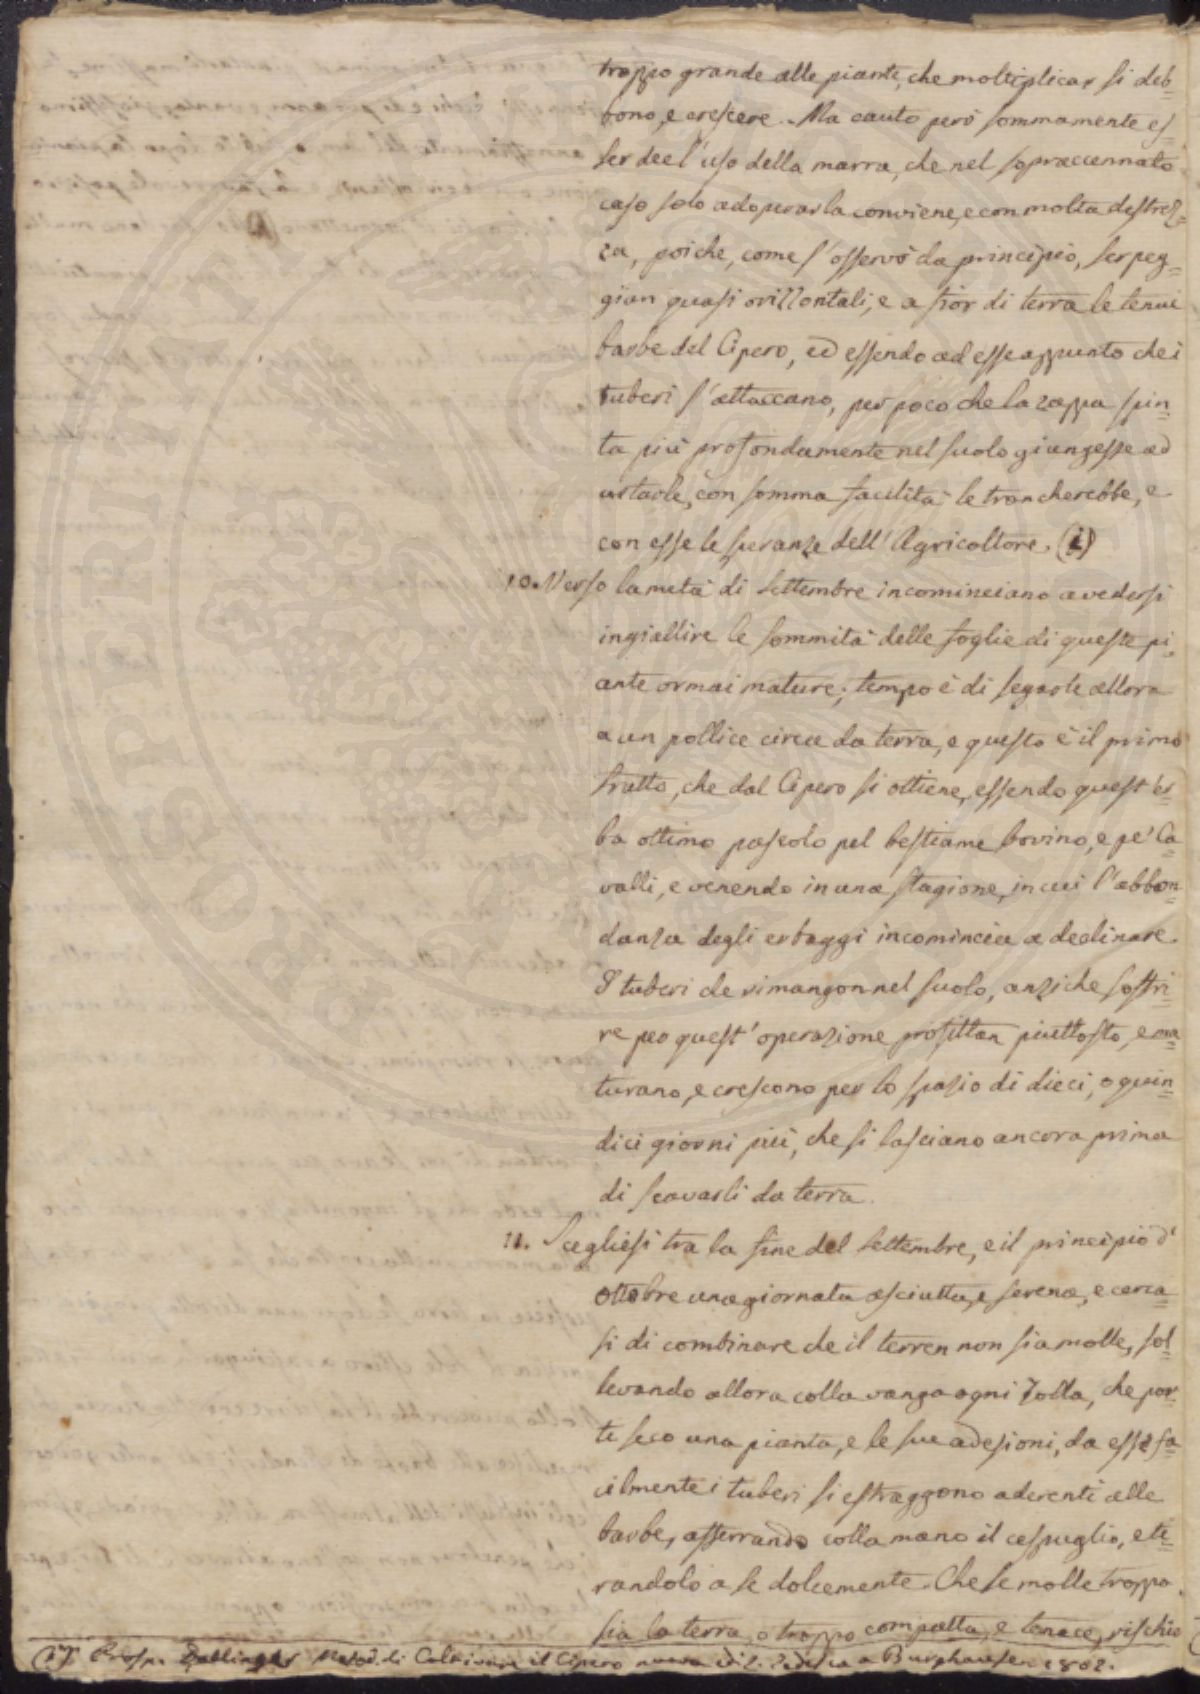 troppo grande alle piante, che moltiplicar si deb=
bono, e crescere. Ma cauto però sommamente es=
ser dee l'uso della marra, che nel sopraccennato
caso solo adoperarla conviene, e con molta destrez=
za, poiche, come s'osservò da principio, serpeg=
gian quasi orizzontali, e a fior di terra le tenui
barbe del Cipero, ed essendo ad esse appunto che i
tuberi s'attaccano, per poco che la zappa spin=
ta più profondamente nel suolo giungesse ad
urtarle, con somma facilità le troncherebbe, e
con esse le speranze dell'Agricoltore. (i)
10. Verso la metà di Settembre incominciano a vedersi
ingiallire le sommità delle foglie di queste pi=
ante ormai mature; tempo è di segarle allora
a un pollice circa da terra, e questo è il primo
frutto, che dal Cipero si ottiene, essendo quest'er=
ba ottimo pascolo pel bestiame bovino, e pe' Ca=
valli, e venendo in una stagione, in cui l'abbon=
danza degli erbaggi incomincia a declinare.
I tuberi che rimangon nel suolo, anziche soffri=
re per quest'operazione profittan piuttosto, e ma=
turano, e crescono per lo spazio di dieci, o quin=
dici giorni più, che si lasciano ancora prima
di scavarli da terra.
11. Scegliesi tra la fine del Settembre, e il principio d'
ottobre una giornata asciutta, e serena, e cerca=
si di combinare che il terren non sia molle, sol=
levando allora colla vanga ogni Zolla, che por=
ti seco una pianta, e le sue adesioni, da esse fa=
cilmente i tuberi si estraggono aderenti alle
barbe, afferrando colla mano il cespuglio, e ti=
randolo a se dolcemente. Che se molle troppo
sia la terra, o troppo compatta, e tenace, rischio
Metod. di Coltivare il Cipero nuova ediz. Tedesca a Burghausen 1802.